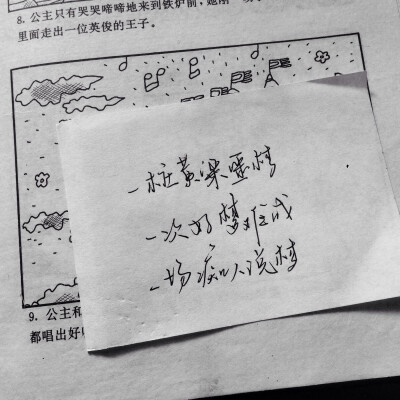 8. 公主只有哭哭啼啼地来到铁炉前，她刚
里面走出一位英俊的王子。
一桩黄粱噩梦
一次好梦难成
一场痴人说梦
9. 公主和
都唱出好